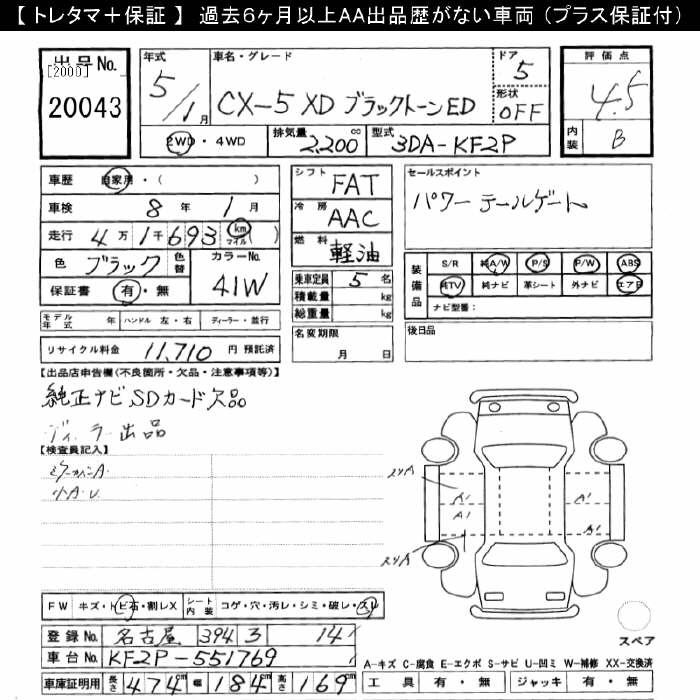 【 トレタマ＋保証 】 過去6ヶ月以上AA出品歴がない車両 (プラス保証付)
出品No.
[2000]
20043
年式 5/1月
車名・グレード
CX-5 XD ブラックトーンED
ドア 5
形状 OFF
2WD・4WD
排気量 2,200 cc
型式 3DA-KF2P
評価点
4.5
内装 B
車歴 自家用・( )
車検 8年 1月
走行 4万1千693 km マイル )
色 ブラック 色替
カラーNo. 41W
保証書 有・無
モデル年式 年 ハンドル 左・右 ディーラー・並行
リサイクル料金 11,710 円 預託済
シフト FAT
冷房 AAC
燃料 軽油
乗車定員 5 名
積載量 kg
総重量 kg
名変期限
月 日
セールスポイント
パワーテールゲート
装備品
S/R 純A/W P/S P/W ABS
純TV 純ナビ 革シート 外ナビ エアB
ナビ型番:
後日品
【出品店申告欄(不良箇所・欠品・注意事項等)】
純正ナビSDカード欠品
ディーラー出品
【検査員記入】
小A.U.
A1
A1
A1
A1
FW キズ・トビ石・割レX
シート内装 コゲ・穴・汚レ・シミ・破レ・スレ
登録No. 名古屋 394 ヨ 14
車台No. KF2P-551769
車庫証明用 長さ 474cm 幅 184cm 高さ 169cm
スペア
A-キズ C-腐食 E-エクボ S-サビ U-凹ミ W-補修 XX-交換済
工具 有・無 ジャッキ 有・無